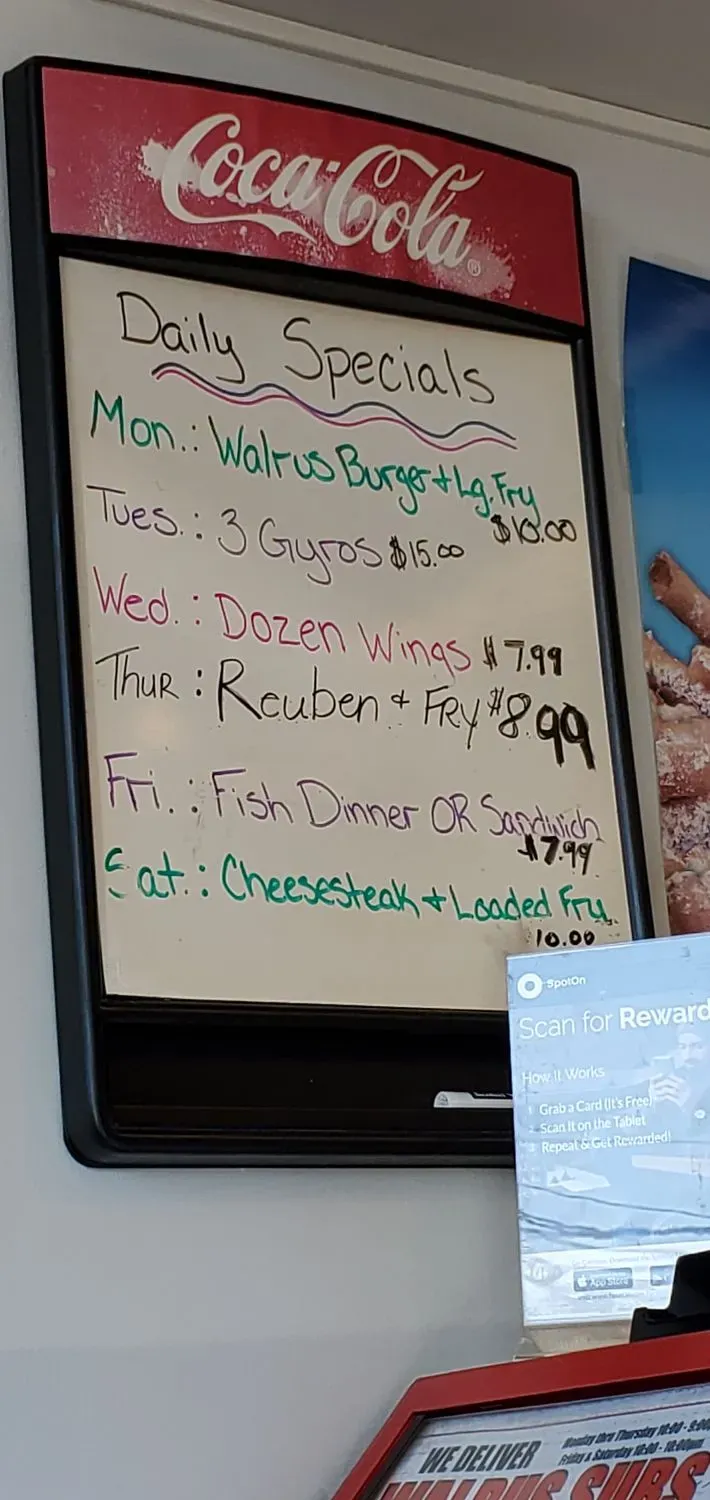 Coca-Cola®
Daily Specials
Mon.: Walrus Burger + Lg. Fry
$10.00
Tues.: 3 Gyros $15.00
Wed.: Dozen Wings $7.99
Thur: Reuben + Fry $8.99
Fri.: Fish Dinner OR Sandwich
$7.99
Sat.: Cheesesteak + Loaded Fry
10.00
SpotOn
Scan for Reward
How It Works
1 Grab a Card (It's Free)
2 Scan It on the Tablet
3 Repeat & Get Rewarded!
App Store
WE DELIVER
Monday thru Thursday 10:00 - 9:00
Friday & Saturday 10:00 - 10:00pm
WALRUS SUBS